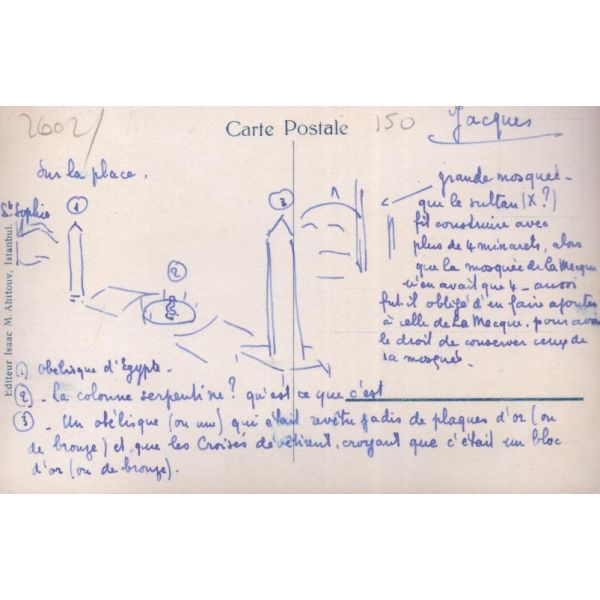 2602/
Carte Postale
150
Jacques
Sur la place.
Ste Sophie
1
2
3
grande mosquée -
que le sultan (X ?)
fit construire avec
plus de 4 minarets, alors
que la mosquée de La Mecque
n'en avait que 4 - aussi
fut-il obligé d'en faire ajouter
à celle de La Mecque, pour avoir
le droit de conserver ceux de
sa mosquée.
Editeur Isaac M. Ahitouv, Istanbul.
1. obélisque d'Egypte -
2. - La colonne serpentine ? qu'est ce que c'est
3. - Un obélisque (ou un) qui était revêtu jadis de plaques d'or (ou
de bronze) et que les Croisés dévêtirent, croyant que c'était un bloc
d'or (ou de bronze).